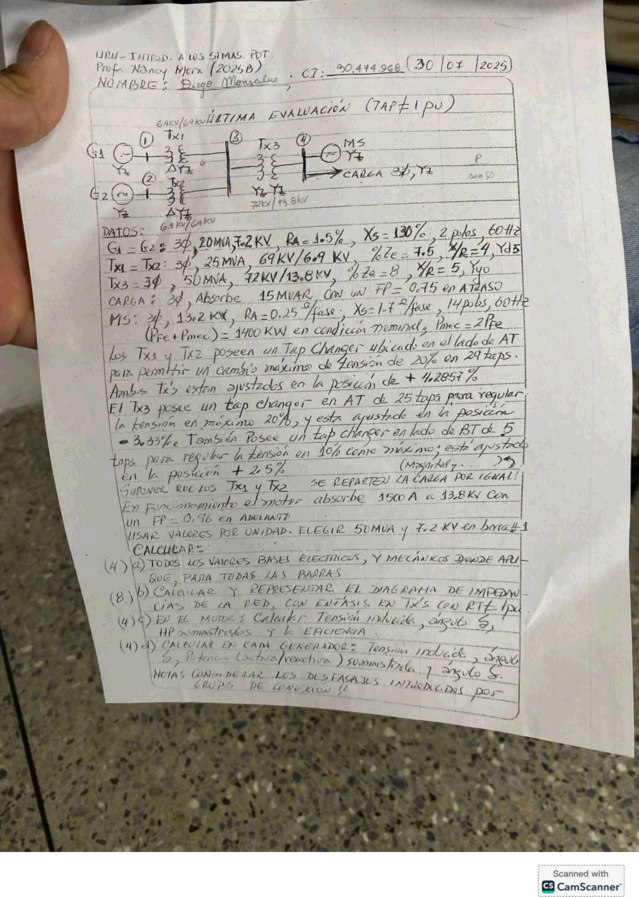 URU-INTROD. A LOS SIMAS. POT.
Profa Nancy Mora (2025B)
NOMBRE: Diego Monsalve. CI: 30.474.968 (30/07/2025)
ÚLTIMA EVALUACIÓN (TAP≠1pu)
6.9KV/69KV
G1 1 Tx1 3 Tx3 4 MS
Yz ΔYz Yz Yz Yz
CARGA 3φ, Yz
G2 2 Tx2
Yz ΔYz 72KV/13.8KV
6.9KV/69KV
P
DATOS:
G1 = G2: 3φ, 20MVA, 7.2 KV, RA=1.5%, XS=130%, 2 polos, 60Hz
Tx1 = Tx2: 3φ, 25MVA, 69KV/6.9 KV, %Ze=7.5, X/R=4, Yd5
Tx3 = 3φ, 50MVA, 72KV/13.8KV, %Ze=8, X/R=5, Yy0
CARGA: 3φ, Absorbe 15MVAR, CON UN FP=0.75 EN ATRASO
MS: 3φ, 13.2 KV, RA=0.25 Ω/fase, XS=1.7 Ω/fase, 14 polos, 60Hz
(PFe+Pmec) = 1400 KW en condición nominal, Pmec=2PFe
Los Tx1 y Tx2 poseen un Tap Changer ubicado en el lado de AT
para permitir un cambio máximo de tensión de 20% en 29 taps.
Ambos Tx's estan ajustados en la posición de + 4.2857%
El Tx3 posee un tap changer en AT de 25 taps para regular
la tensión en máximo 20%, y esta ajustado en la posición
- 3.33%. También Posee un tap changer en lado de BT de 5
taps para regular la tensión en 10% como máximo; está ajustado
en la posición + 2.5%
SUPONER QUE LOS Tx1 y Tx2 SE REPARTEN LA CARGA POR IGUAL!
En funcionamiento el motor absorbe 1500 A a 13.8KV con
un FP=0.96 en ADELANTO
USAR VALORES POR UNIDAD. ELEGIR 50MVA y 7.2 KV en barra #1
CALCULAR:
(4) a) TODOS LOS VALORES BASES ELECTRICOS, Y MECÁNICOS DONDE APLI-
QUE, PARA TODAS LAS BARRAS
(8) b) CALCULAR Y REPRESENTAR EL DIAGRAMA DE IMPEDAN
CIAS DE LA RED, CON ENFASIS EN Tx's CON RT≠1pu
(4) c) EN EL MOTOR: Calcular Tensión inducida, ángulo δ,
HP suministrados y la EFICIENCIA
(4) d) CALCULAR EN CADA GENERADOR: Tensión inducida, ángulo
δ, Potencia (activa/reactiva) suministrada y ángulo δ.
NOTA: CONSIDERAR LOS DESFASAJES INTRODUCIDOS POR
GRUPOS DE CONEXION !!
Scanned with
CS CamScanner